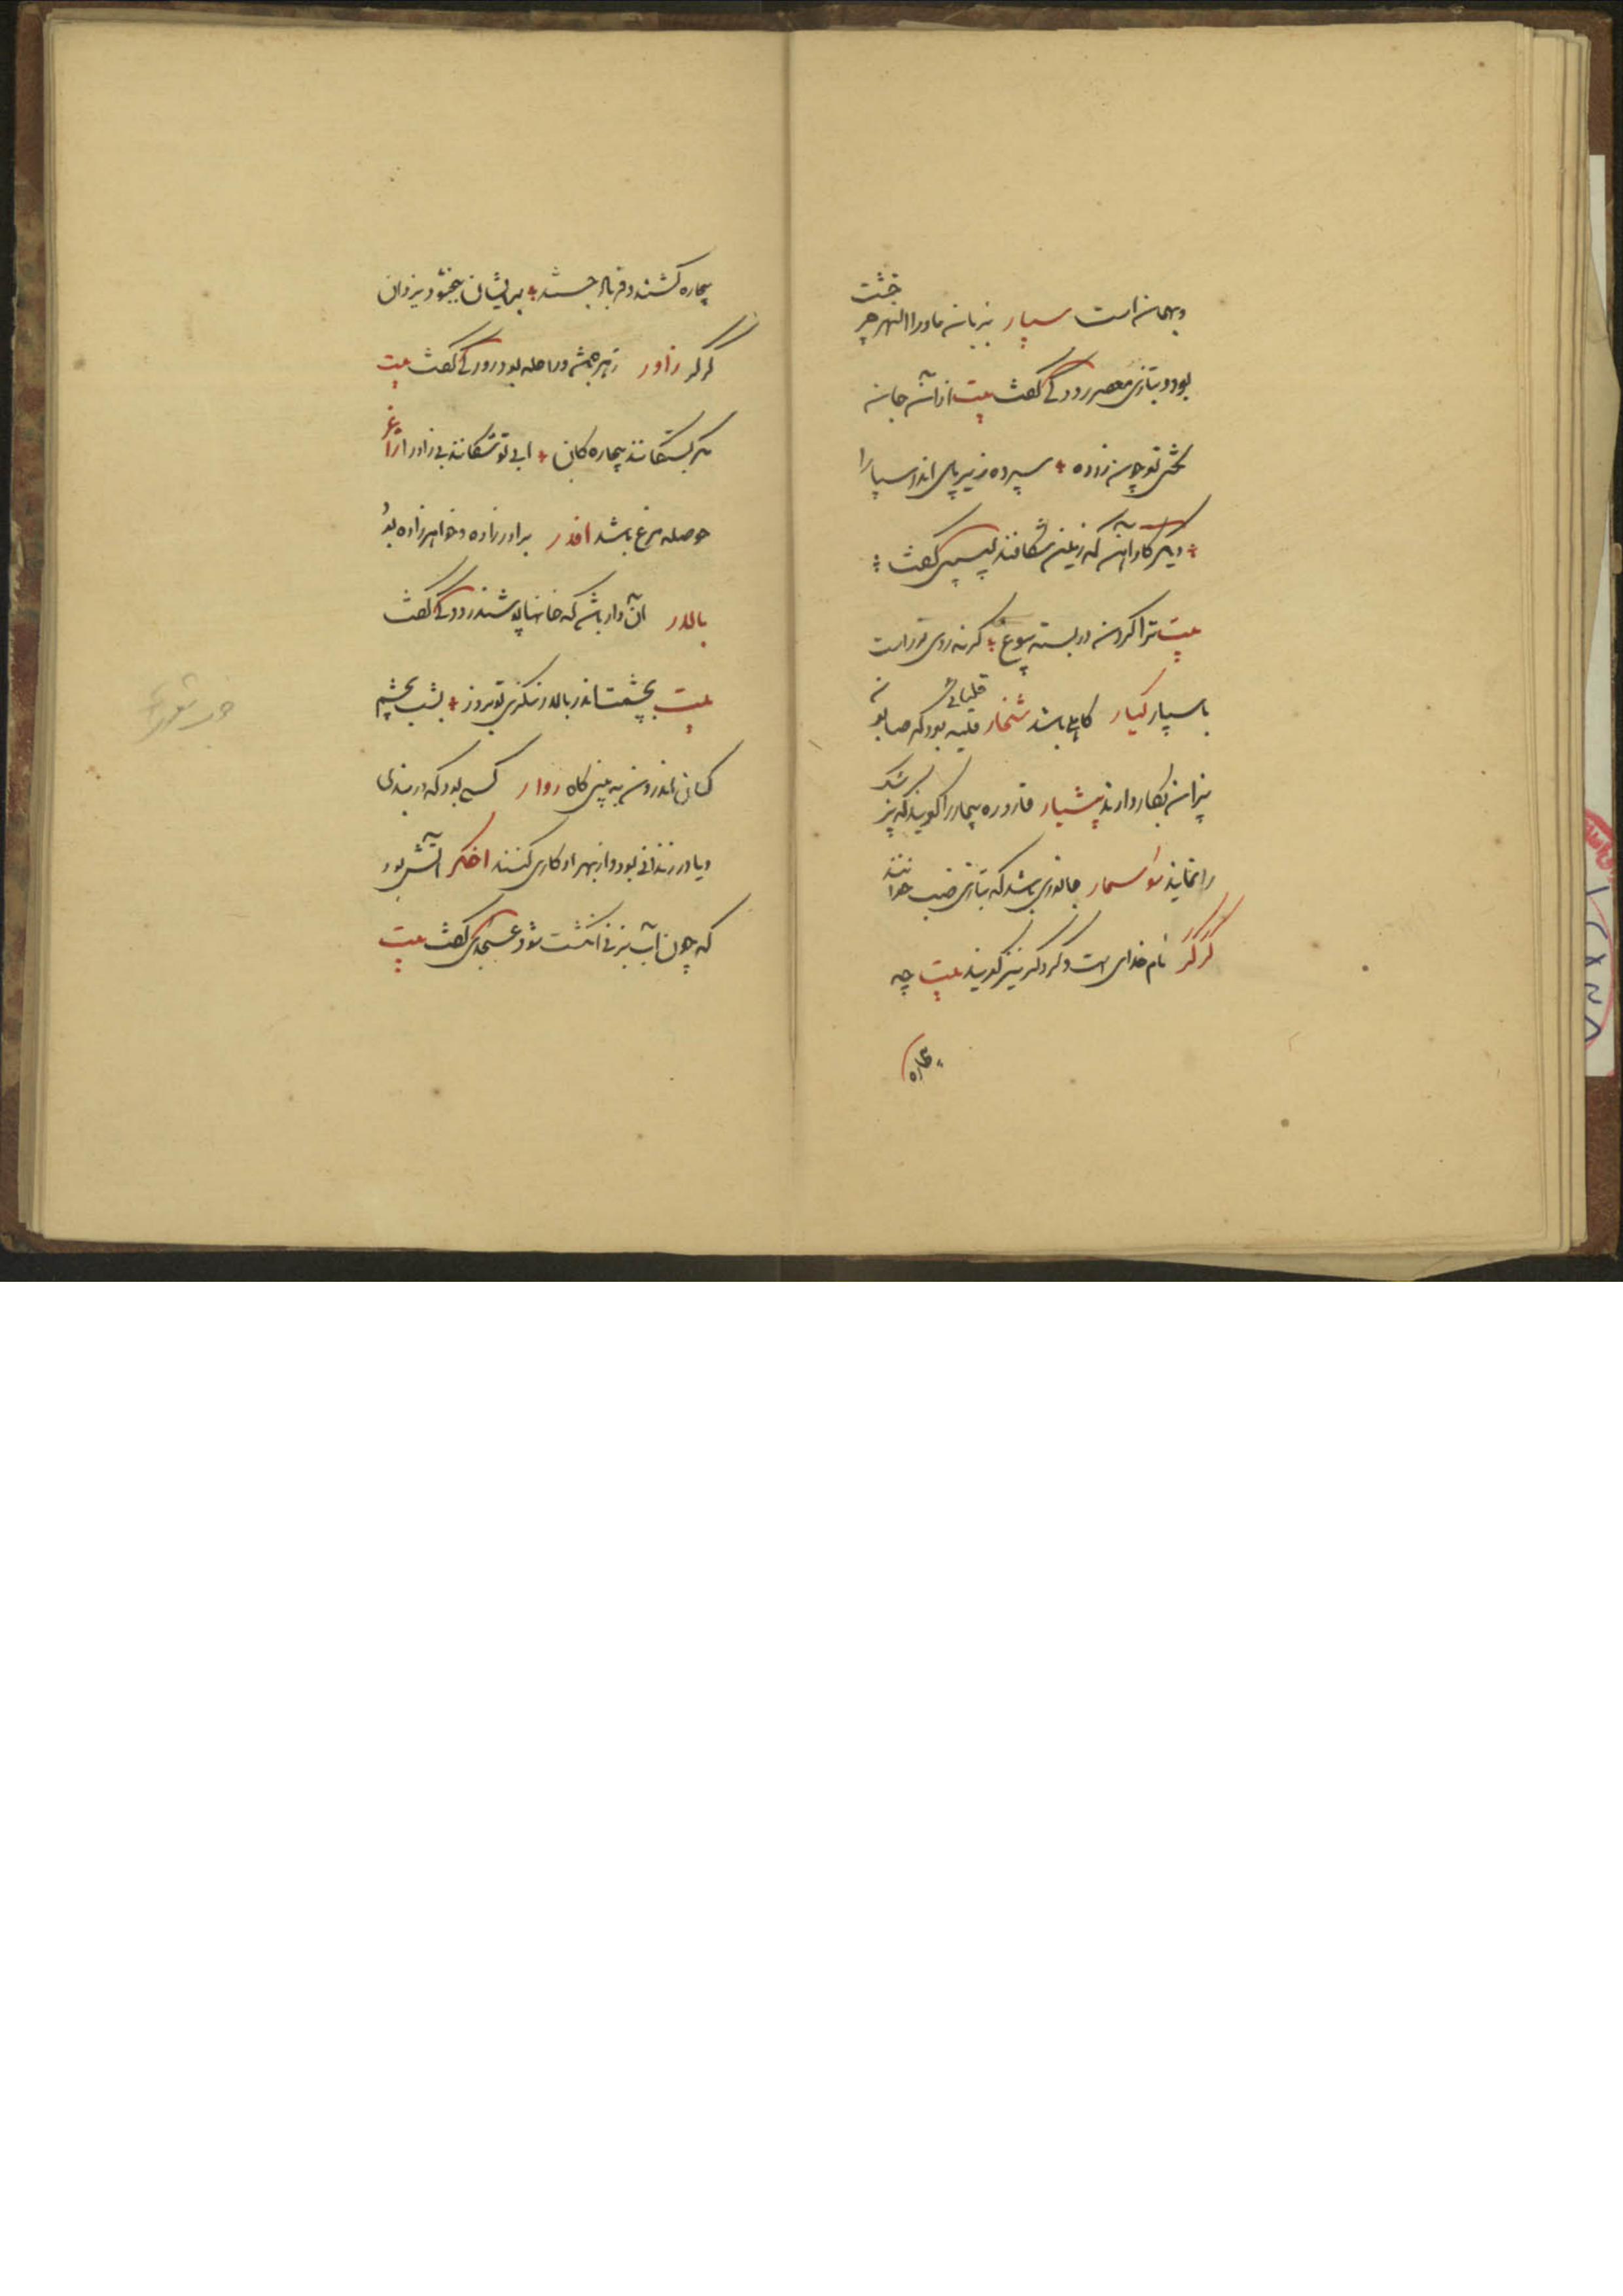 و بهمان است سپار بزبان ماوراالنهر چر
خشت
بود و بتازی معصر رودکی گفت بیت از آن جان
تو چون زدوده سپرده زیر پای اندر سپارا
و دیگر گاو آهن که زمین شکافند لبیبی گفت
بیت ترا کردن در بسته بیوغ کرنه روی راست
با سپار کیار کاهلی باشد شخار قلیه بود که صابو
قلیائی
ن
پزان بکار دارند پیشیار قاروره بیمار را گویند که پز
شک
را نمایند سوسمار جانوری باشد که بتازی ضب خوا
نند
گرگر نام خدای است و گروگر نیز گویند بیت چه
بیچاره
بیچاره گشتند و فریاد جستند بر ایشان ببخشود یزدان
گرگر زاور زهره بود رودکی گفت بیت
بیچاره گان ابی تو بی زاورا ژاغر
حوصله مرغ باشد افدر برادر زاده و خواهر زاده بود
بالار آن دار باشد که خانها پوشند رودکی گفت
بیت بچشمت اندر بالار ننگری تو بروز بشب بچشم
کسان اندرون به بینی کاه زوار کسی بود که در بندی
و یا در زندانی بود و از بهر او کاری کنند اخگر آتش بود
که چون آب بزنی انگشت شود عسجدی گفت بیت